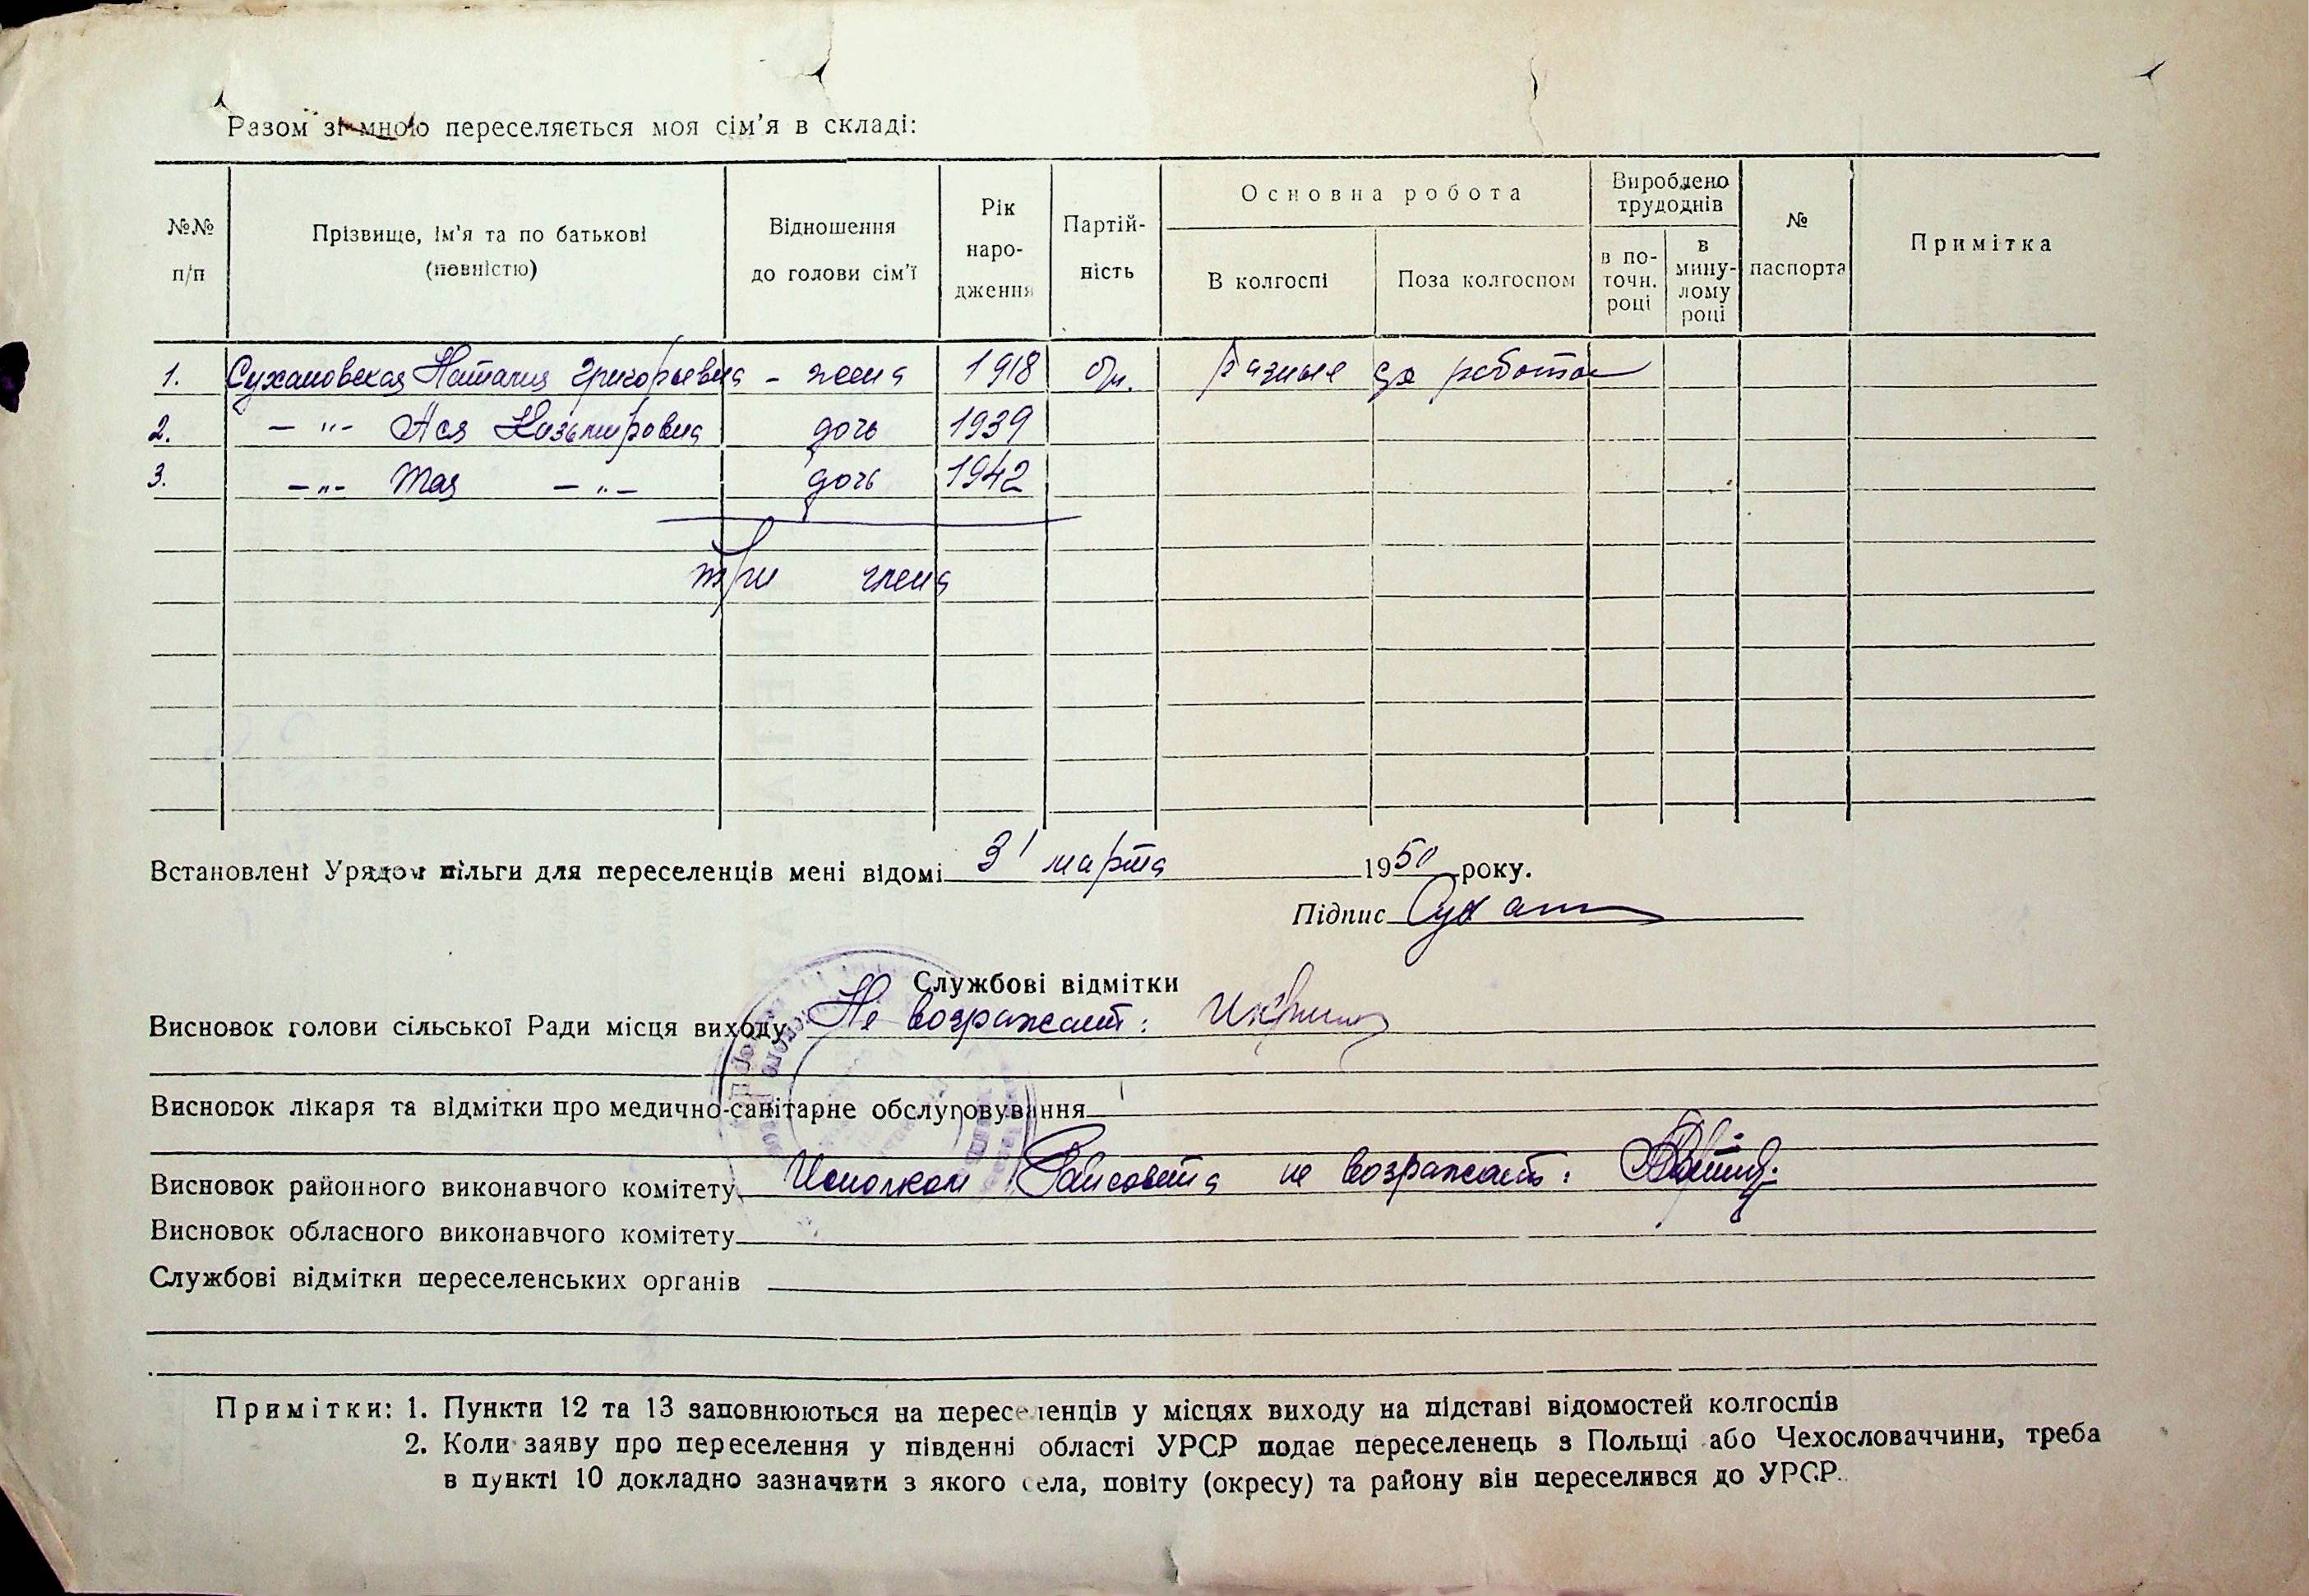 Разом зі мною переселяється моя сім'я в складі:
№№ п/п
Прізвище, ім'я та по батькові (повністю)
Відношення до голови сім'ї
Рік народження
Партійність
Основна робота
В колгоспі
Поза колгоспом
Вироблено трудоднів
в поточн. році
в минулому році
№ паспорта
Примітка
1. Сухановская Наталия Григорьевна - жена 1918 Разные работы
2. - " - Ася Казьмировна дочь 1939
3. - " - Мая - " - дочь 1942
три члена
Встановлені Урядом пільги для переселенців мені відомі 31 марта 1950 року.
Підпис
Службові відмітки
Висновок голови сільської Ради місця виходу Не возражает:
Висновок лікаря та відмітки про медично-санітарне обслуговування
Висновок районного виконавчого комітету Исполком Райсовета не возражает:
Висновок обласного виконавчого комітету
Службові відмітки переселенських органів
Примітки: 1. Пункти 12 та 13 заповнюються на переселенців у місцях виходу на підставі відомостей колгоспів
2. Коли заяву про переселення у південні області УРСР подає переселенець з Польщі або Чехословаччини, треба
в пункті 10 докладно зазначити з якого села, повіту (окресу) та району він переселився до УРСР.